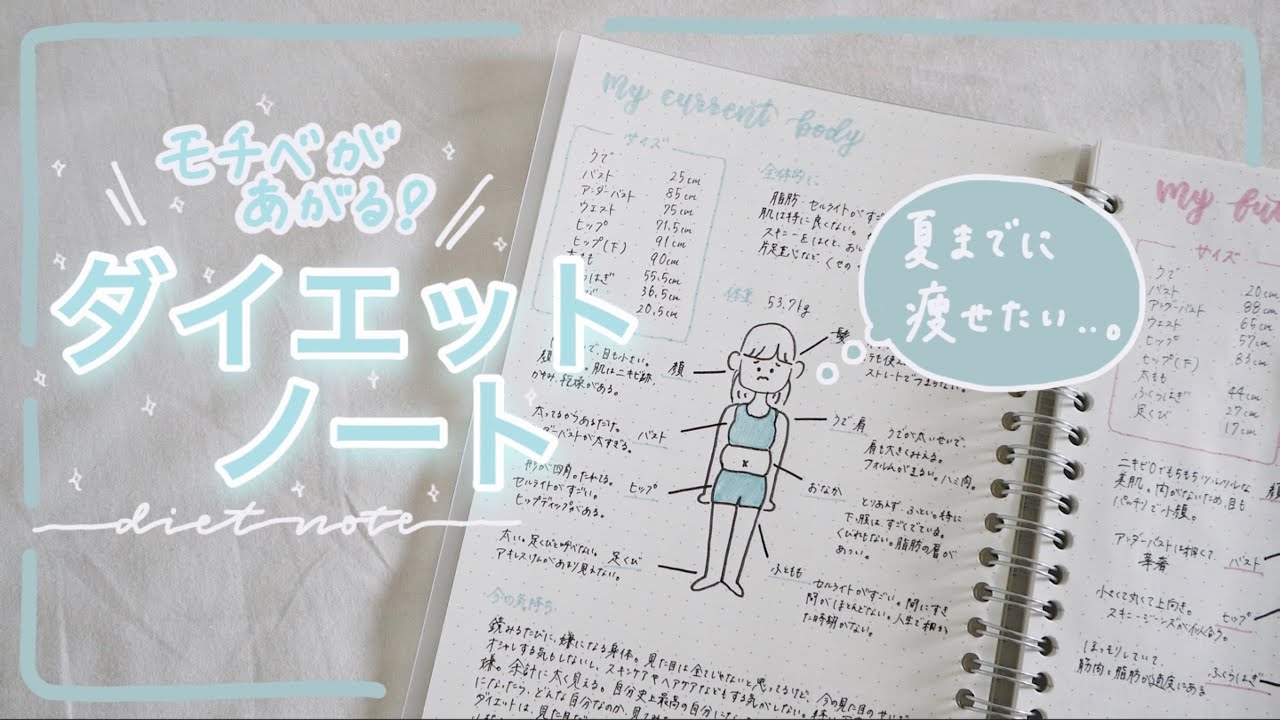 モチベが
あがる!
ダイエット
ノート
diet note
夏までに
痩せたい...。
My current body
サイズ
うで 25cm
バスト 85cm
アンダーバスト 75cm
ウエスト 71.5cm
ヒップ 91cm
ヒップ(下) 90cm
55.5cm
36.5cm
20.5cm
全体的に
脂肪、セルライトがすご
肌は特に良くない。
スキニーをはくと、お
片足重心など、くせの
体重 53.7kg
髪
ストレートでつまらない。
顔
で、目も小さい。
肌はニキビ跡、
乾燥がある。
バスト
太ってるからあるだけ。
ダーバストが太すぎる。
うで 肩
うでが太いせいで、
肩も大きくみえる。
フォルムがまるい。ハミ肉。
ヒップ
形が四角。たれてる。
セルライトがすごい。
ヒップディップがある。
おなか
とりあえず、ふとい。特に
下腹は、すごくでている。
くびれもない。脂肪の層が
あつい。
足くび
太い。足くびと呼べない。
アキレスけんがあまり見えない。
ふともも
セルライトがすごい。間にすき
間がほとんどない。人生で細か
った時期がない。
今の気持ち
鏡みるたびに、嫌になる身体。見た目は全てじゃないと思ってるけど、今の見た目の
オシャレする気もしないし、スキンケアやヘアケアなどもする気がしない。
嫌。余計に太く見える。自分史上最高の自分に
になったら、どんな自分なのか、見てみ
ダイエットは、見た目だ
My fu
サイズ
うで 20cm
バスト 88cm
アンダーバスト 65cm
ウエスト 57cm
ヒップ 83cm
ヒップ(下)
太もも 44cm
ふくらはぎ 27cm
足くび 17cm
ニキビ0でもちもちツルツルな
美肌。肉がないため、目も
パッチリで小顔。
顔
アンダーバストは細くて、
華奢
バスト
小さくて丸くて上向き。
スキニージーンズが似合う。
ヒップ
ほっそりしていて、
筋肉と脂肪が適度にある
ふくらはぎ